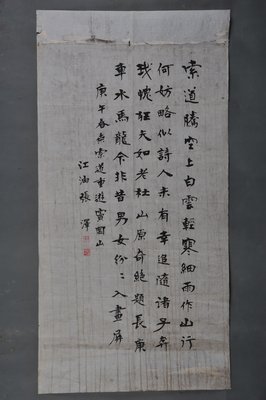 索道騰空上白雲輕寒細雨作山行
何妨略似詩人未有幸追隨諸子弄
我愧狂夫如老杜山原奇絕題長庚
車水馬龍今非昔男女紛〻入畫屏
庚午春乘索道重遊竇圌山
江油張澤